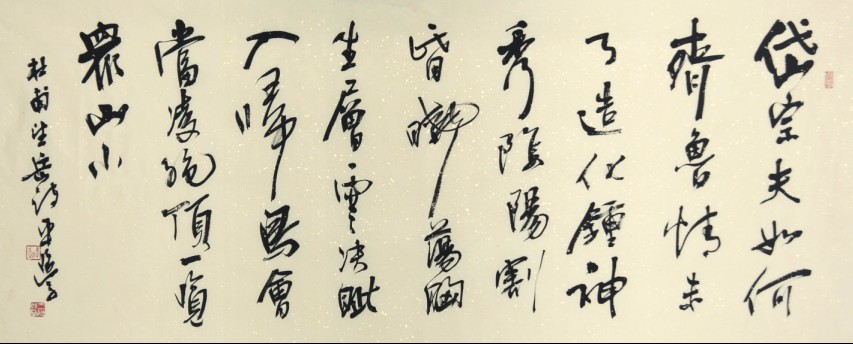 岱宗夫如何
齊魯情未
了造化鍾神
秀陰陽割
昏曉蕩胸
生層雲決眦
入歸鳥會
當凌絕頂一覽
眾山小
杜甫望岳詩